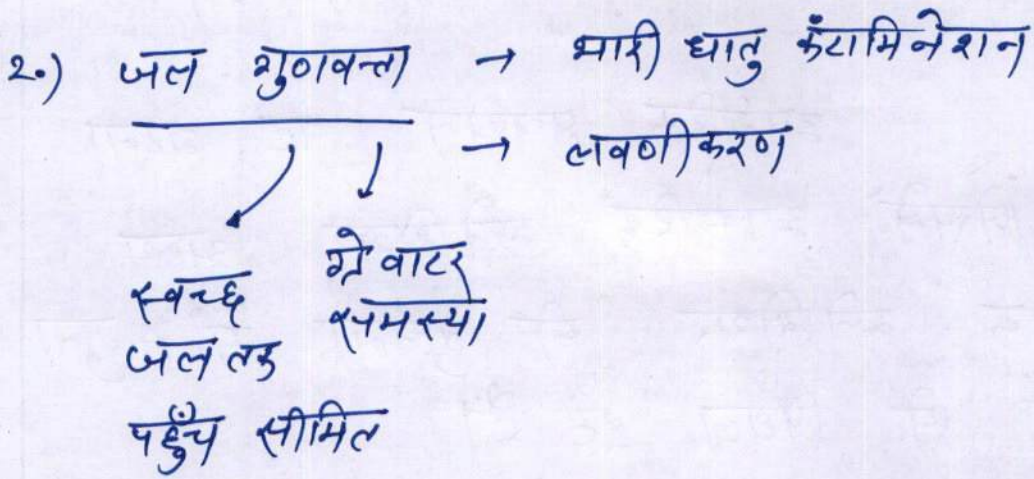 2.) जल गुणवत्ता → भारी धातु कंटामिनेशन
→ लवणीकरण
स्वच्छ
जल तक
पहुँच सीमित
ग्रे वाटर
समस्या